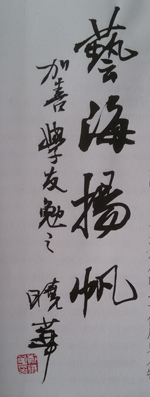 藝海揚帆
加善學友勉之
曉華